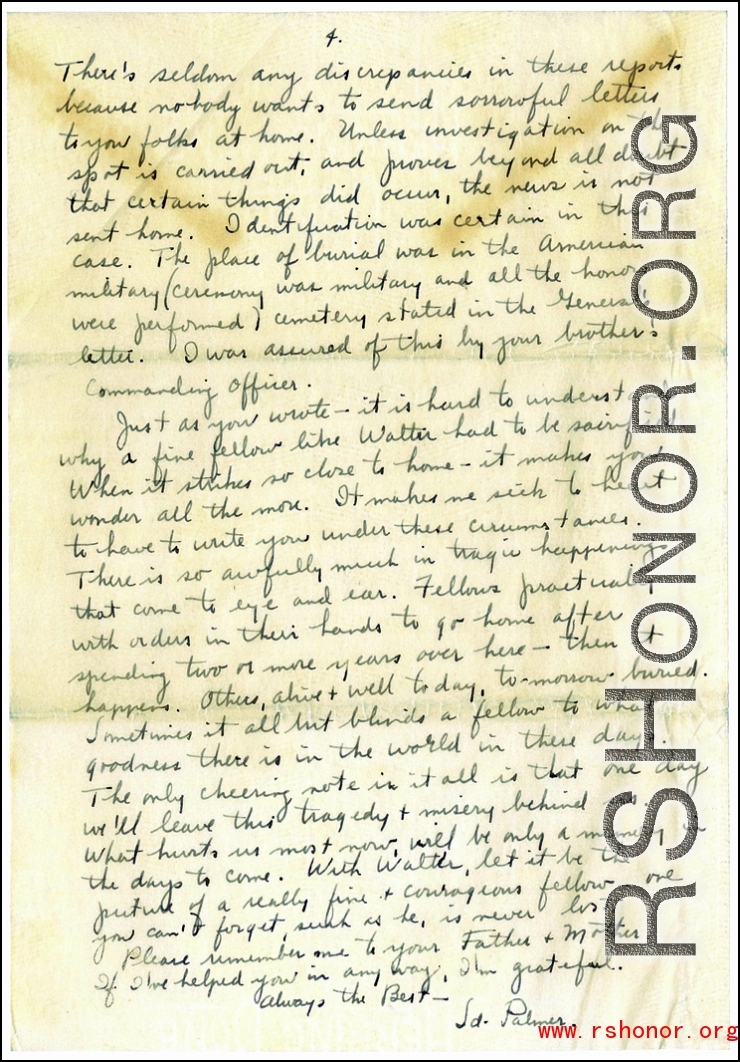 4.
There's seldom any discrepancies in these reports
because nobody wants to send sorrowful letters
to you folks at home. Unless investigation on the
spot is carried out, and proves beyond all doubt
that certain things did occur, the news is not
sent home. Identification was certain in this
case. The place of burial was in the American
military (ceremony was military and all the honors
were performed) cemetery stated in the General's
letter. I was assured of this by your brother's
Commanding Officer.
Just as you wrote - it is hard to understand
why a fine fellow like Walter had to be sacrificed.
When it strikes so close to home - it makes you
wonder all the more. It makes me sick to heart
to have to write you under these circumstances.
There is so awfully much in tragic happenings
that come to eye and ear. Fellows practically
with orders in their hands to go home after
spending two or more years over here - then it
happens. Others, alive + well today, to-morrow buried.
Sometimes it all but blinds a fellow to what
goodness there is in the world in these days.
The only cheering note in it all is that one day
we'll leave this tragedy + misery behind us.
What hurts us most now, will be only a memory in
the days to come. With Walter, let it be the
picture of a really fine + courageous fellow one
you can't forget, such as he, is never lost
Please remember me to your Father + Mother
If I've helped you in any way, I'm grateful.
Always the Best -
Sd. Palmer
RSHONOR.ORG
www.rshonor.org